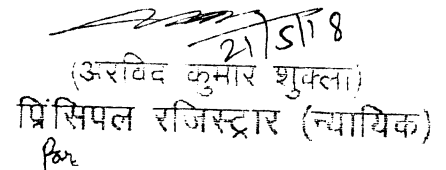 21/5/18
(अरविंद कुमार शुक्ला)
प्रिंसिपल रजिस्ट्रार (न्यायिक)